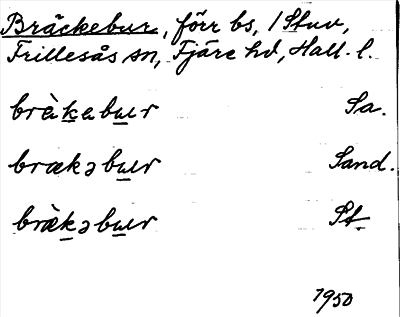 Bräckebur, förr bs, 1 Stuv,
Frillesås sn, Fjäre hd, Hall. l.
brèkabur Sa.
brækəbur Sand.
bræ̀kəbur St.
1950